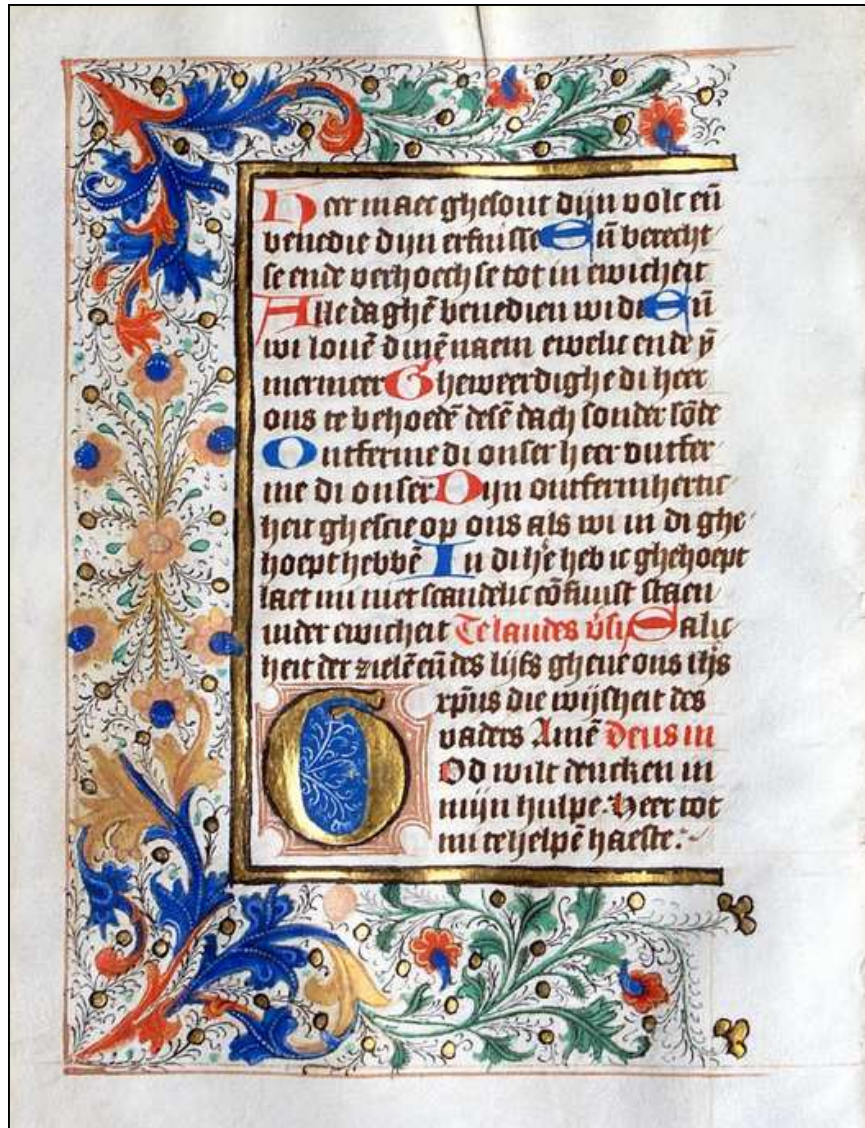 Heer maec ghesont dijn volc eñ
benedie dijn erfnisse Eñ berecht
se ende verhoech se tot in ewicheit
Alle daghē benedien wi di Eñ
wi louē dinē naem ewelic ende ȳ
mermeer Gheweerdighe di heer
ons te behoedē desē dach sonder sōde
Ontferme di onser heer ontfer
me di onser Dijn ontfermhertic
heit ghescie op ons als wi in di ghe
hoept hebbē In di he heb ic ghehoept
laet mi niet scandelic cōfuust staen
inder ewicheit Te laudes Salic
heit der zielē eñ des lijfs gheue ons ihs
xp̄us die wijsheit des
vaders Amē Deus in
GOd wilt dencken in
mijn hulpe. Heer tot
mi te helpē haeste.